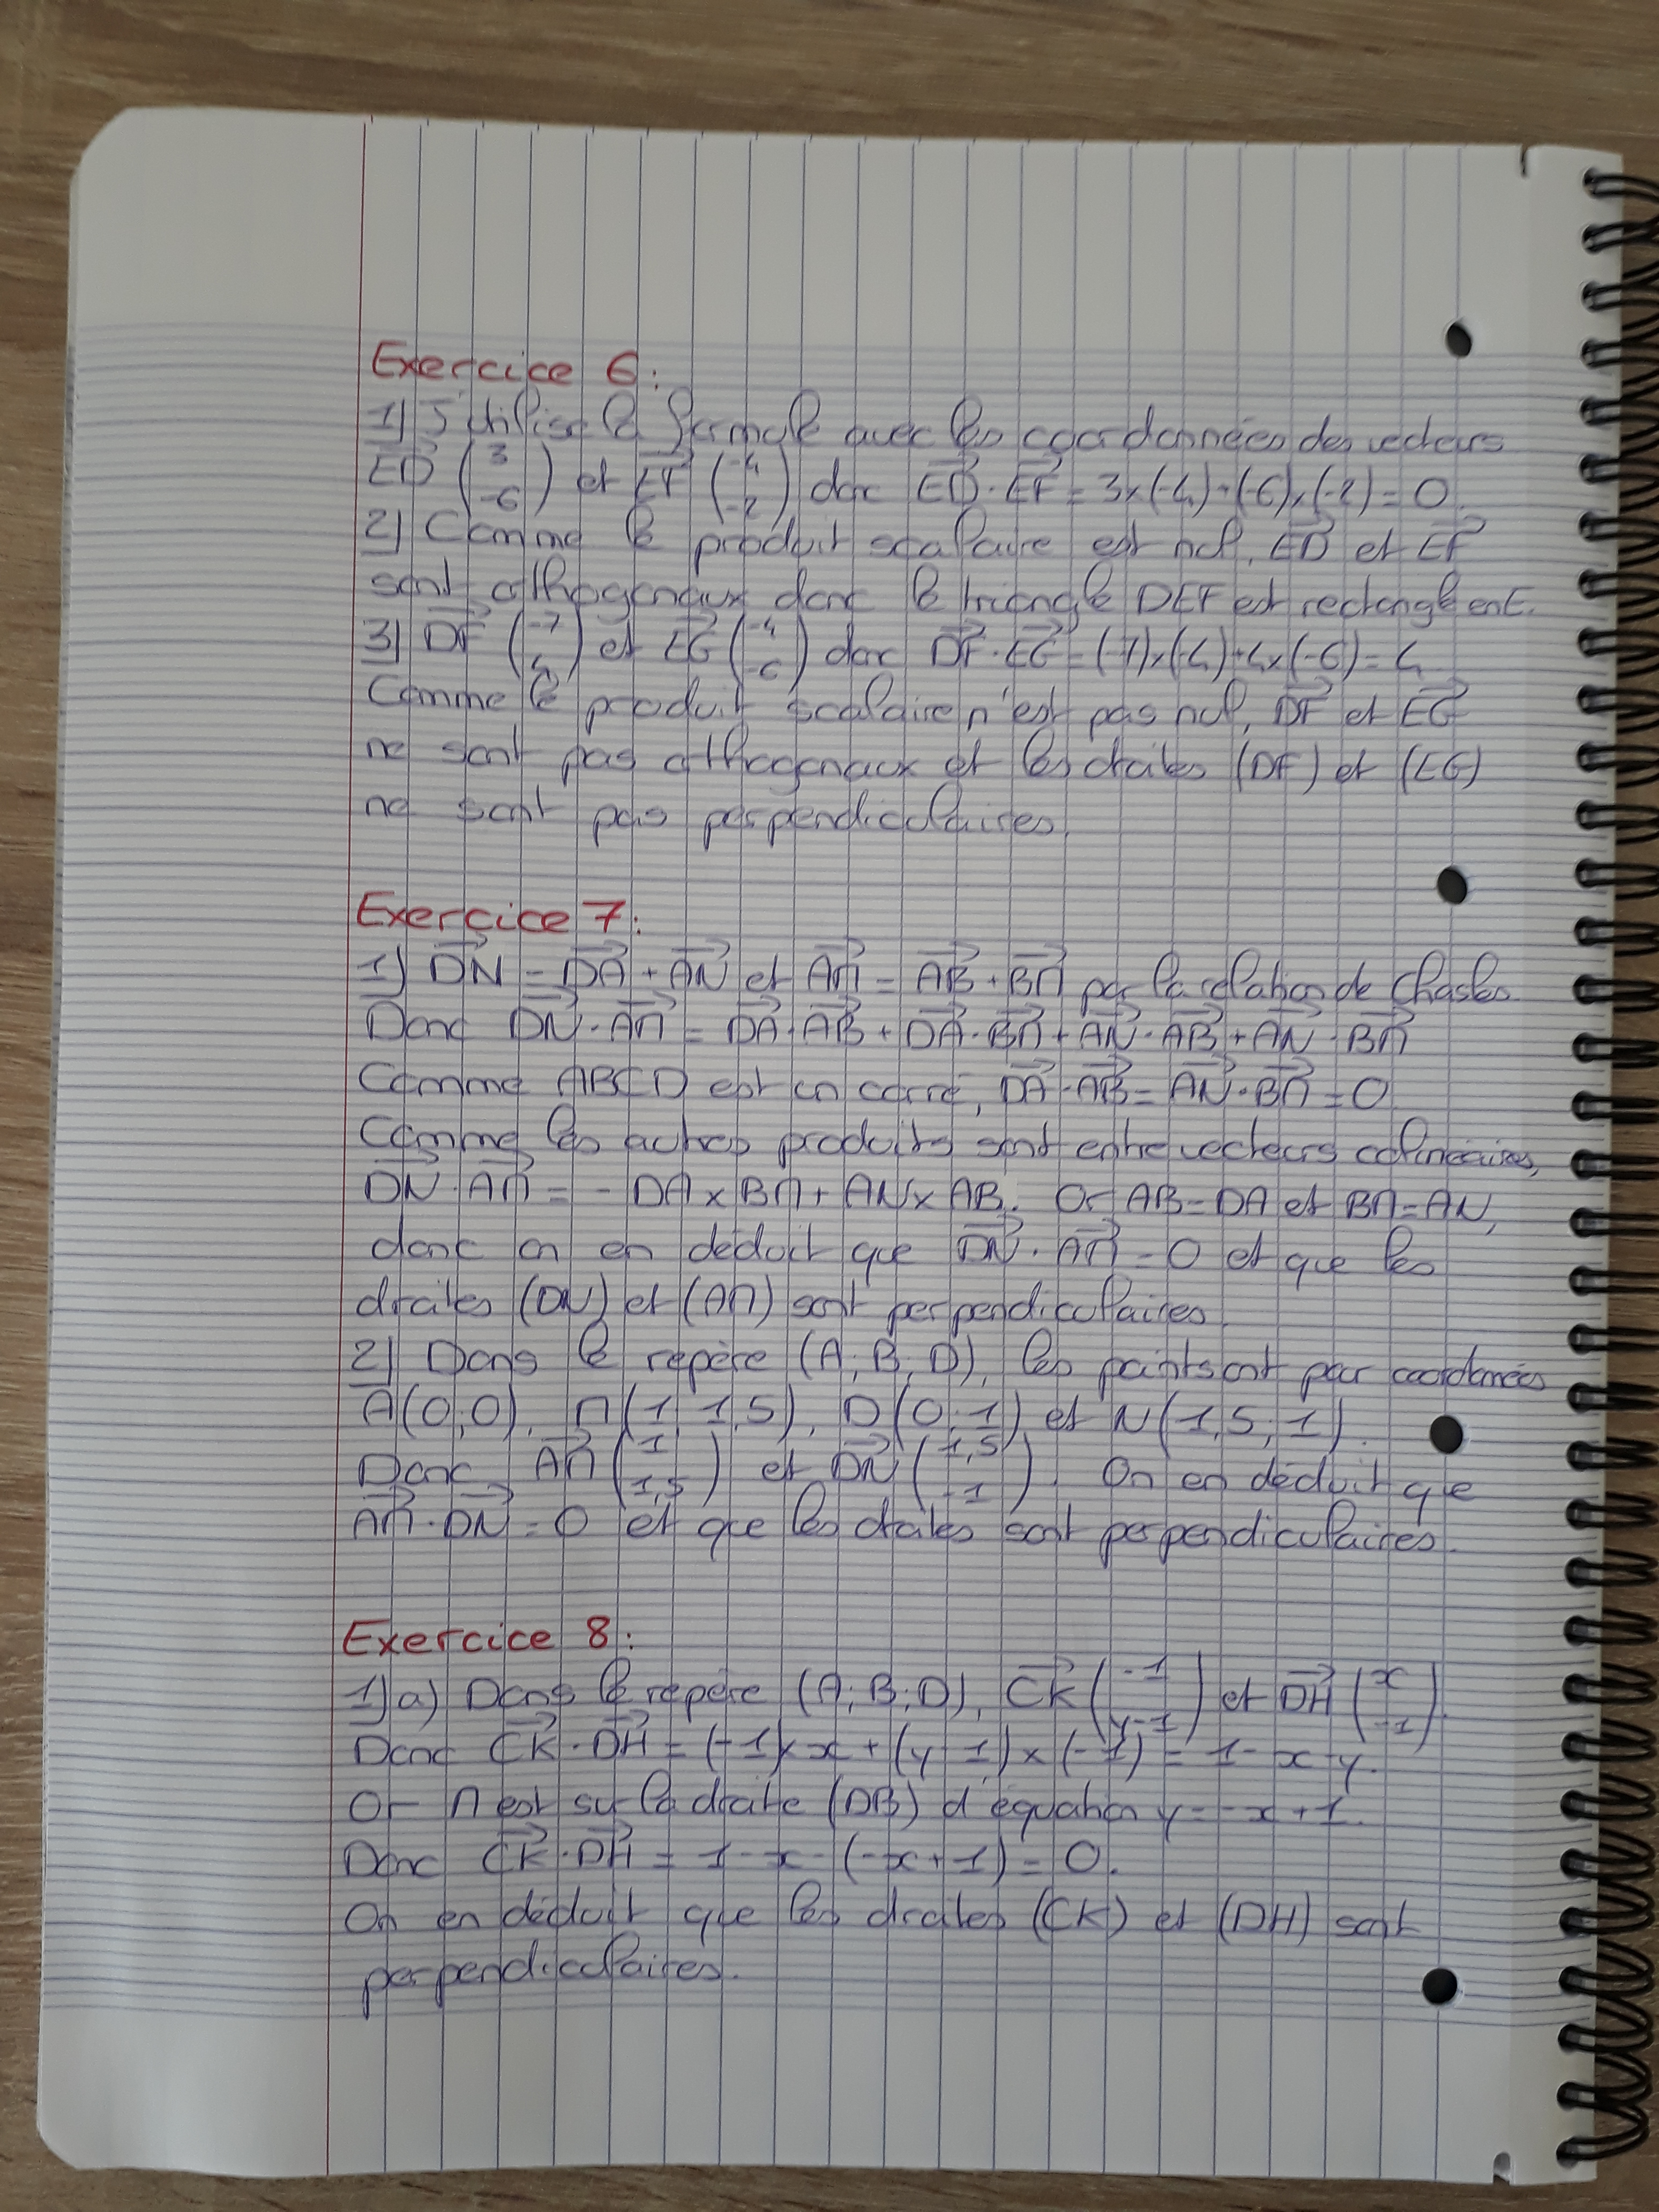 Exercice 6 :
1) J'utilise la formule avec les coordonnées des vecteurs
ED (3 -6) et EF (-4 -2) donc ED · EF = 3×(-4)+(-6)×(-2) = 0.
2) Comme le produit scalaire est nul, ED et EF
sont orthogonaux donc le triangle DEF est rectangle en E.
3) DF (-7 4) et EG (-4 -6) donc DF · EG = (-7)×(-4)+4×(-6) = 4
Comme le produit scalaire n'est pas nul, DF et EG
ne sont pas orthogonaux et les droites (DF) et (EG)
ne sont pas perpendiculaires.
Exercice 7 :
1) DN = DA + AN et AM = AB + BM par la relation de Chasles.
Donc DN · AM = DA · AB + DA · BM + AN · AB + AN · BM
Comme ABCD est un carré, DA · AB = AN · BM = 0
Comme les autres produits sont entre vecteurs colinéaires,
DN · AM = - DA × BM + AN × AB. Or AB = DA et BM = AN,
donc on en déduit que DN · AM = 0 et que les
droites (DN) et (AM) sont perpendiculaires.
2) Dans le repère (A; B; D), les points ont pour coordonnées
A(0;0), M(1; 1,5), D(0;1) et N(1,5; 1).
Donc AM (1 1,5) et DN (1,5 -1). On en déduit que
AM · DN = 0 et que les droites sont perpendiculaires.
Exercice 8 :
1) a) Dans le repère (A; B; D), CK (-1 y-1) et DH (x -1).
Donc CK · DH = (-1)× x + (y-1) × (-1) = 1 - x - y.
Or M est sur la droite (DB) d'équation y = -x + 1.
Donc CK · DH = 1 - x - (-x + 1) = 0.
On en déduit que les droites (CK) et (DH) sont
perpendiculaires.